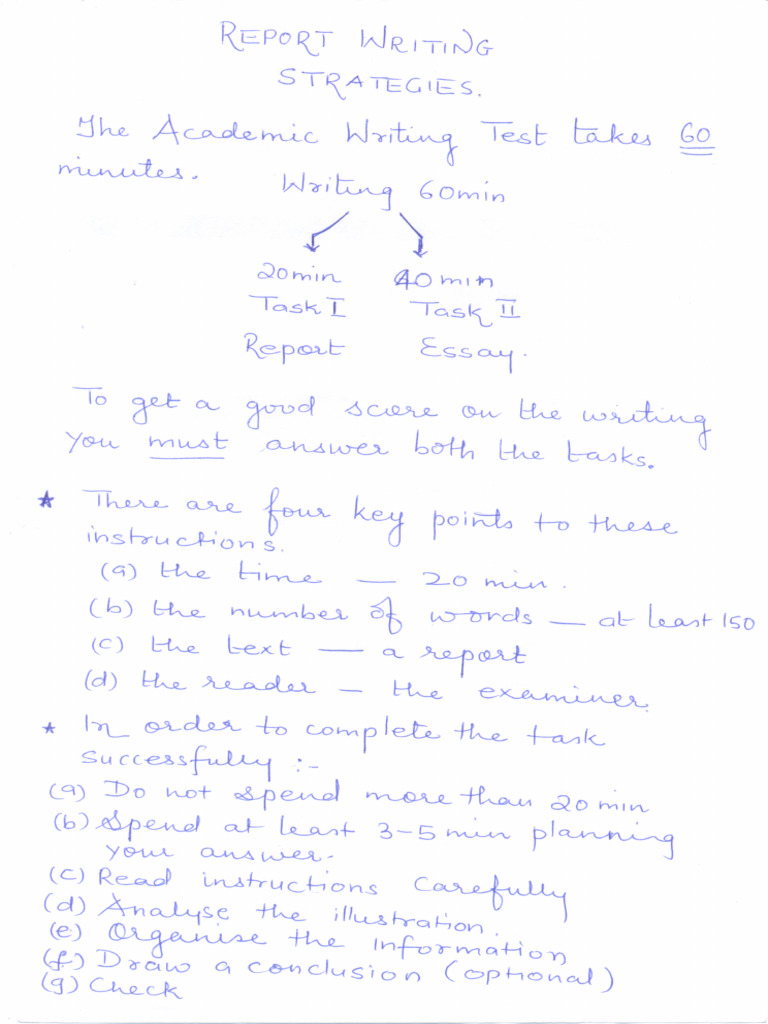 REPORT WRITING
STRATEGIES.
The Academic Writing Test takes 60
minutes.
Writing 60min
20min 40min
Task I Task II
Report Essay.
To get a good score on the writing
you must answer both the tasks.
★ There are four key points to these
instructions.
(a) the time — 20 min.
(b) the number of words — at least 150
(c) the text — a report
(d) the reader — the examiner.
★ In order to complete the task
successfully :-
(a) Do not spend more than 20 min
(b) Spend at least 3-5 min planning
your answer.
(c) Read instructions carefully
(d) Analyse the illustration.
(e) Organise the Information
(f) Draw a conclusion (optional)
(g) Check